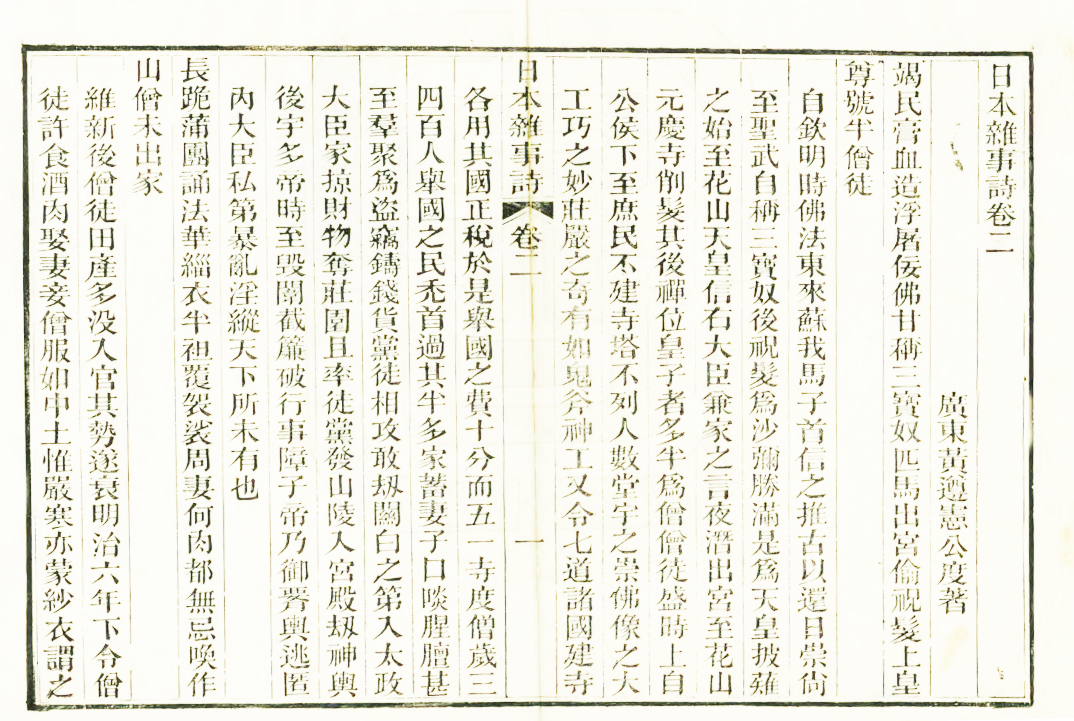 日本雜事詩卷二
廣東黃遵憲公度著
竭民膏血造浮屠佞佛甘稱三寶奴匹馬出宮偷祝髮上皇
尊號半僧徒
自欽明時佛法東來蘇我馬子首信之推古以還日崇尚
至聖武自稱三寶奴後祝髮爲沙彌勝滿是爲天皇披薙
之始至花山天皇信右大臣兼家之言夜潛出宮至花山
元慶寺削髮其後禪位皇子者多半爲僧僧徒盛時上自
公侯下至庶民不建寺塔不列人數堂宇之崇佛像之大
工巧之妙莊嚴之奇有如鬼斧神工又令七道諸國建寺
日本雜事詩 卷二 一
各用其國正稅於是舉國之費十分而五一寺度僧歲三
四百人舉國之民禿首過其半多家蓄妻子口啖腥膻甚
至羣聚爲盜竊鑄錢貨黨徒相攻敢刼關白之第入太政
大臣家掠財物奪莊園且率徒黨發山陵入宮殿刼神輿
後宇多帝時至毀闌截簾破行事障子帝乃御腰輿逃匿
內大臣私第暴亂淫縱天下所未有也
長跪蒲團誦法華緇衣半袒覆袈裟周妻何肉都無忌喚作
山僧未出家
維新後僧徒田產多没入官其勢遂衰明治六年下令僧
徒許食酒肉娶妻妾僧服如中土惟嚴寒亦蒙紗衣謂之